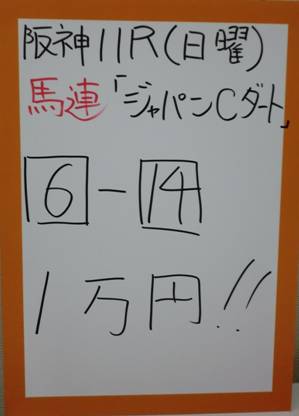 阪神11R(日曜)
馬連「ジャパンCダート」
6-14
1万円!!